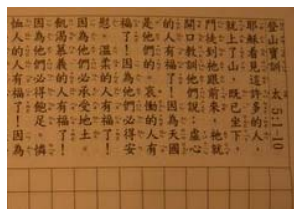 登山寶訓 太 5:1-10
耶穌看見這許多的人，
就上了山，既已坐下，
門徒到他跟前來，他就
開口教訓他們說：虛心
的人有福了！因為天國
是他們的。哀慟的人有
福了！因為他們必得安
慰。溫柔的人有福了！
因為他們必承受地土。
飢渴慕義的人有福了！
因為他們必得飽足。憐
恤人的人有福了！因為